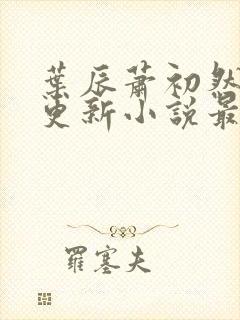 葉辰蕭初然
更新小說最
羅塞夫